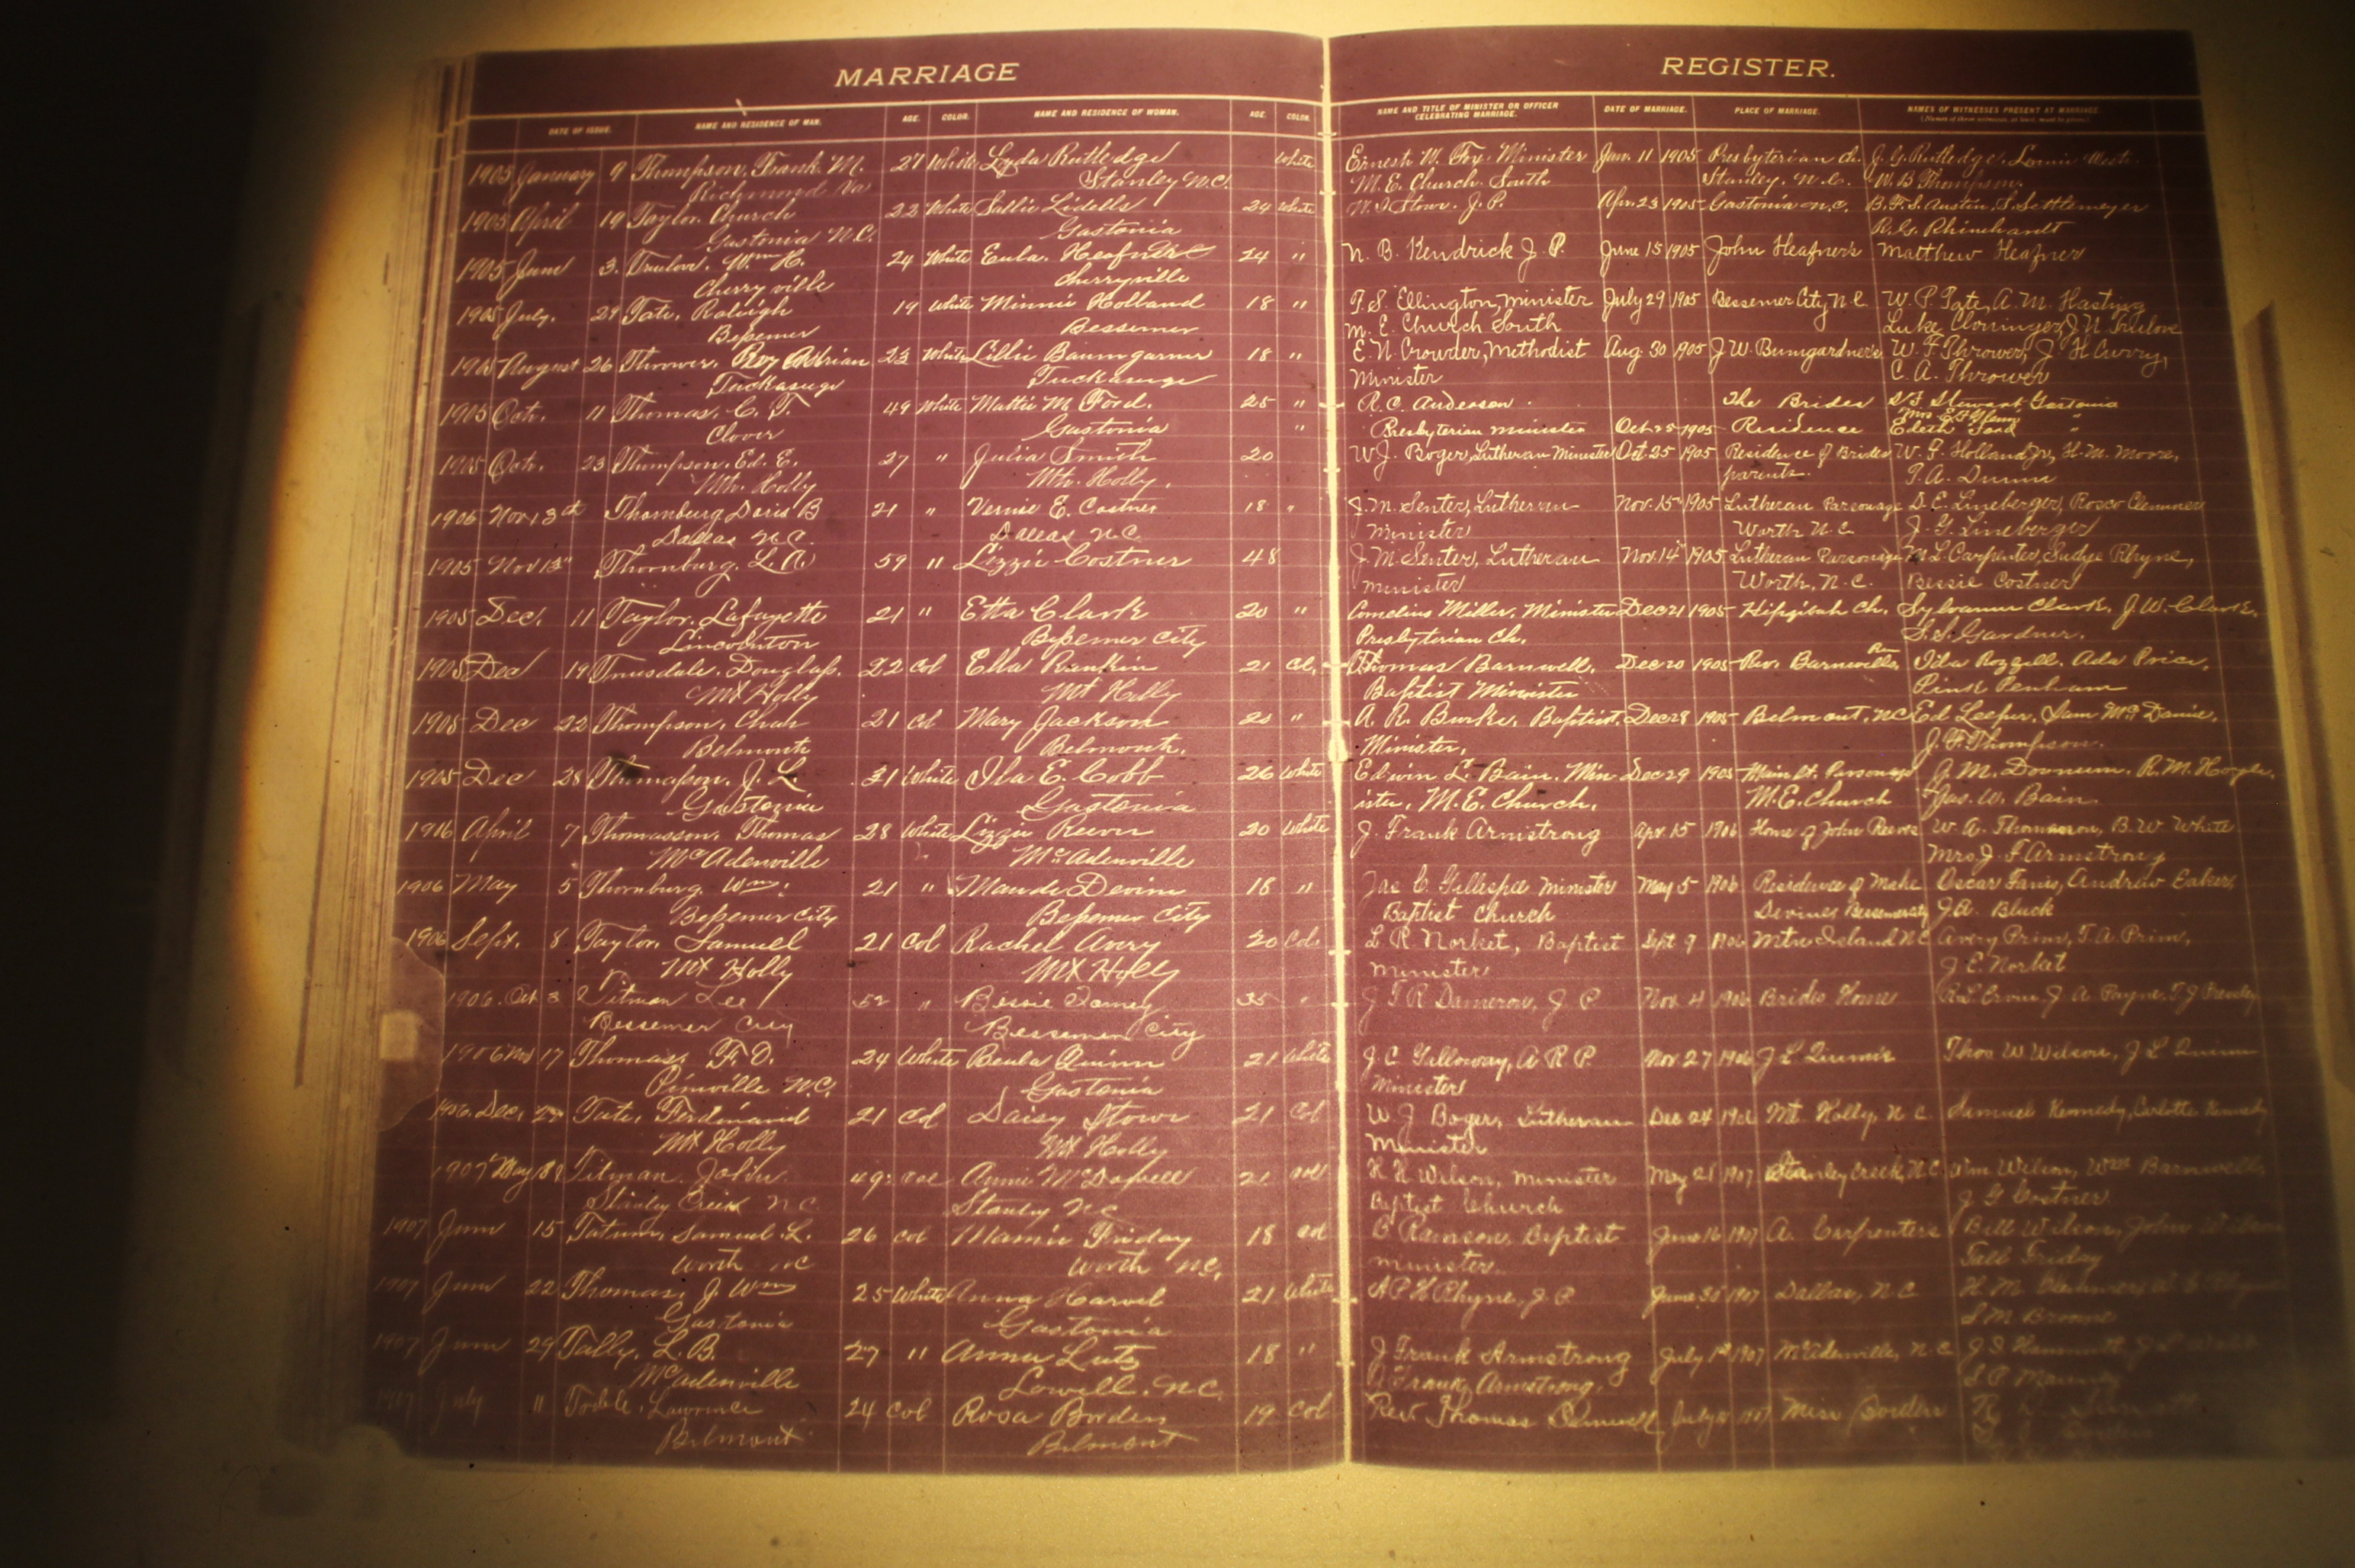 MARRIAGE REGISTER.
DATE OF ISSUE. NAME AND RESIDENCE OF MAN. AGE. COLOR. NAME AND RESIDENCE OF WOMAN. AGE. COLOR. NAME AND TITLE OF MINISTER OR OFFICER CELEBRATING MARRIAGE. DATE OF MARRIAGE. PLACE OF MARRIAGE. NAMES OF WITNESSES PRESENT AT MARRIAGE.
1905 January 9 Thompson, Frank M. 27 White Lyda Rutledge White Ernest W. Fox, Minister Jan. 11 1905 Presbyterian ch. J. G. Rutledge,
Richmond Va Stanley N.C. M.E. Church South Stanley, N.C. W. B. Thompson
1905 April 19 Taylor, Church 22 White Sallie Lidelle 24 White Stowe, J.P. Apr. 23 1905 Gastonia N.C. B.F.S. Austin, S. Settlemeyer
Gastonia N.C. Gastonia R.G. Rhinehardt
1905 June 3. Truelove, Wm H. 24 White Eula Heafner 24 " N. B. Kendrick J. P. June 15 1905 John Heafner's Matthew Heafner
Cherryville Cherryville
1905 July. 29 Tate, Raleigh 19 White Minnie Holland 18 " T. S. Ellington, minister July 29 1905 Bessemer City, N.C. W. P. Tate, A. M. Hasting
Bessemer Bessemer M. E. Church South Luke Clonninger, J. N. Truelove
1905 August 26 Thrower, Roy Adrian 23 White Lillie Baumgarner 18 " E. N. Crowder, Methodist Aug. 30 1905 J W. Bumgardner's W. F. Thrower, J. H. Curry,
Tuckasuge Tuckasuge Minister C. A. Thrower
1905 Oct. 11 Thomas, C. T. 49 White Mattie M Ford. 25 " R. C. Anderson The Brides Stewart, Gastonia
Clover Gastonia " Presbyterian minister Oct 25 1905 Residence Mrs Edith Ford "
1905 Oct. 23 Thompson, Ed. E. 27 " Julia Smith 20 W. J. Boger, Lutheran Minister Oct. 25 1905 Residence of Brides W. F. Holland Jr, H. M. Moore,
Mt. Holly Mt. Holly. parents. T. A. Dunn
1905 Nov. 13th Thornburg Doris B 21 " Vernie E. Costner 18 " J. M. Senter, Lutheran Nov. 15th 1905 Lutheran Parsonage D. E. Lineberger, Rosco Clemmer
Dallas N.C. Dallas N.C. Minister Worth N.C. J. G. Lineberger
1905 Nov 13th Thornburg, L. A. 59 " Lizzie Costner 48 J. M. Senter, Lutheran Nov. 14th 1905 Lutheran Parsonage M. L. Carpenter, Judge Rhyne,
minister Worth, N.C. Bessie Costner
1905 Dec. 11 Taylor, Lafayette 21 " Etta Clark 20 " Cornelius Miller, Minister Dec 21 1905 Hepzibah Ch. Sylvanus Clark, J. W. Clark,
Lincolnton Bessemer City Presbyterian Ch. S. S. Gardner.
1905 Dec 19 Truesdale, Douglass. 22 Col Ella Rankin 21 Col. Thomas Barnwell, Dec 20 1905 Rev. Barnwells Ida Rozzell, Ada Price,
Mt Holly Mt Holly Baptist Minister Pink Penham
1905 Dec 22 Thompson, Chas 21 Col Mary Jackson 20 " A. R. Burke, Baptist, Dec 28 1905 Belmont, N.C. Ed Leeper, Sam McDaniel,
Belmont Belmont. Minister, J. F. Thompson.
1905 Dec 28 Thomason, J. L. 31 White Ila E. Cobb 26 White Edwin L. Bain, Min- Dec 29 1905 Main St. Parsonage J. M. Downum, R. M.
Gastonia Gastonia ister, M.E. Church. M.E. Church Jas. W. Bain
1916 April 7 Thomasson, Thomas 28 White Lizzie Reeves 20 White J. Frank Armstrong Apr. 15 1906 Home of John Reeves W. A. Thomasson, B. W. White
McAdenville McAdenville Mrs J. F. Armstrong
1906 May 5 Thornburg, Wm. 21 " Maude Devine 18 " Jas C. Gillespie minister May 5 1906 Residence of Mike Oscar Faris, Andrew Eaker,
Bessemer City Bessemer City Baptist Church Devines Bessemer City J. A. Black
1906 Sept. 8 Taylor, Samuel 21 Col Rachel Avery 20 Col. L. R. Norket, Baptist Sept 9 1906 Mtn Island N.C Avery Prim, T. A. Prim,
Mt Holly Mt Holly minister J. E. Norket
1906. Oct 3 Titman Lee 52 " Bessie 35 " J F R Dameron, J P Nov. 4 1906 Brides Home J A. Payne, T J
Bessemer City Bessemer City
1906 17 Thomas, F. O. 24 White Beula Quinn 21 White J. C. Galloway, A R P. Nov. 27 1906 J L Quinn's Thos W Wilson, J L Quinn
Pineville N.C. Gastonia Minister
1906. Dec. Tate, Ferdinand 21 Col Daisy Stowe 21 Col W. J Boger, Lutheran Dec 24 1906 Mt. Holly, N C. Samuel Kennedy, Carlotte Kennedy
Mt Holly Mt Holly Minister
1907 May 18 Titman, John 49. Col Annie McDowell 21 Col Wilson, minister May 21 1907 Stanley Creek, N.C. Wm Wilson, Wm Barnwell,
Stanley Creek N C Stanley N C Baptist Church J G Costner
1907 June 15 Tatum, Samuel L. 26 Col Mamie Friday 18 Col Ramson, Baptist June 16 1907 A. Carpenters Bill Wilson, John
Worth N C Worth N.C. minister. Friday
1907 June 22 Thomas, J. Wm 25 White Anna Harvel 21 White A P H Rhyne, J. P June 30 1907 Dallas, N. C H. M.
Gastonia Gastonia S M Broome
1907 June 29 Tally, L. B. 27 " Anna Lutz 18 " J Frank Armstrong July 1st 1907 McAdenville, N. C
McAdenville Lowell, N.C. J. Frank Armstrong. S P
1907 July 11 Lawrence 24 Col Rosa Borders 19 Col Rev Thomas July 1907
Belmont Belmont